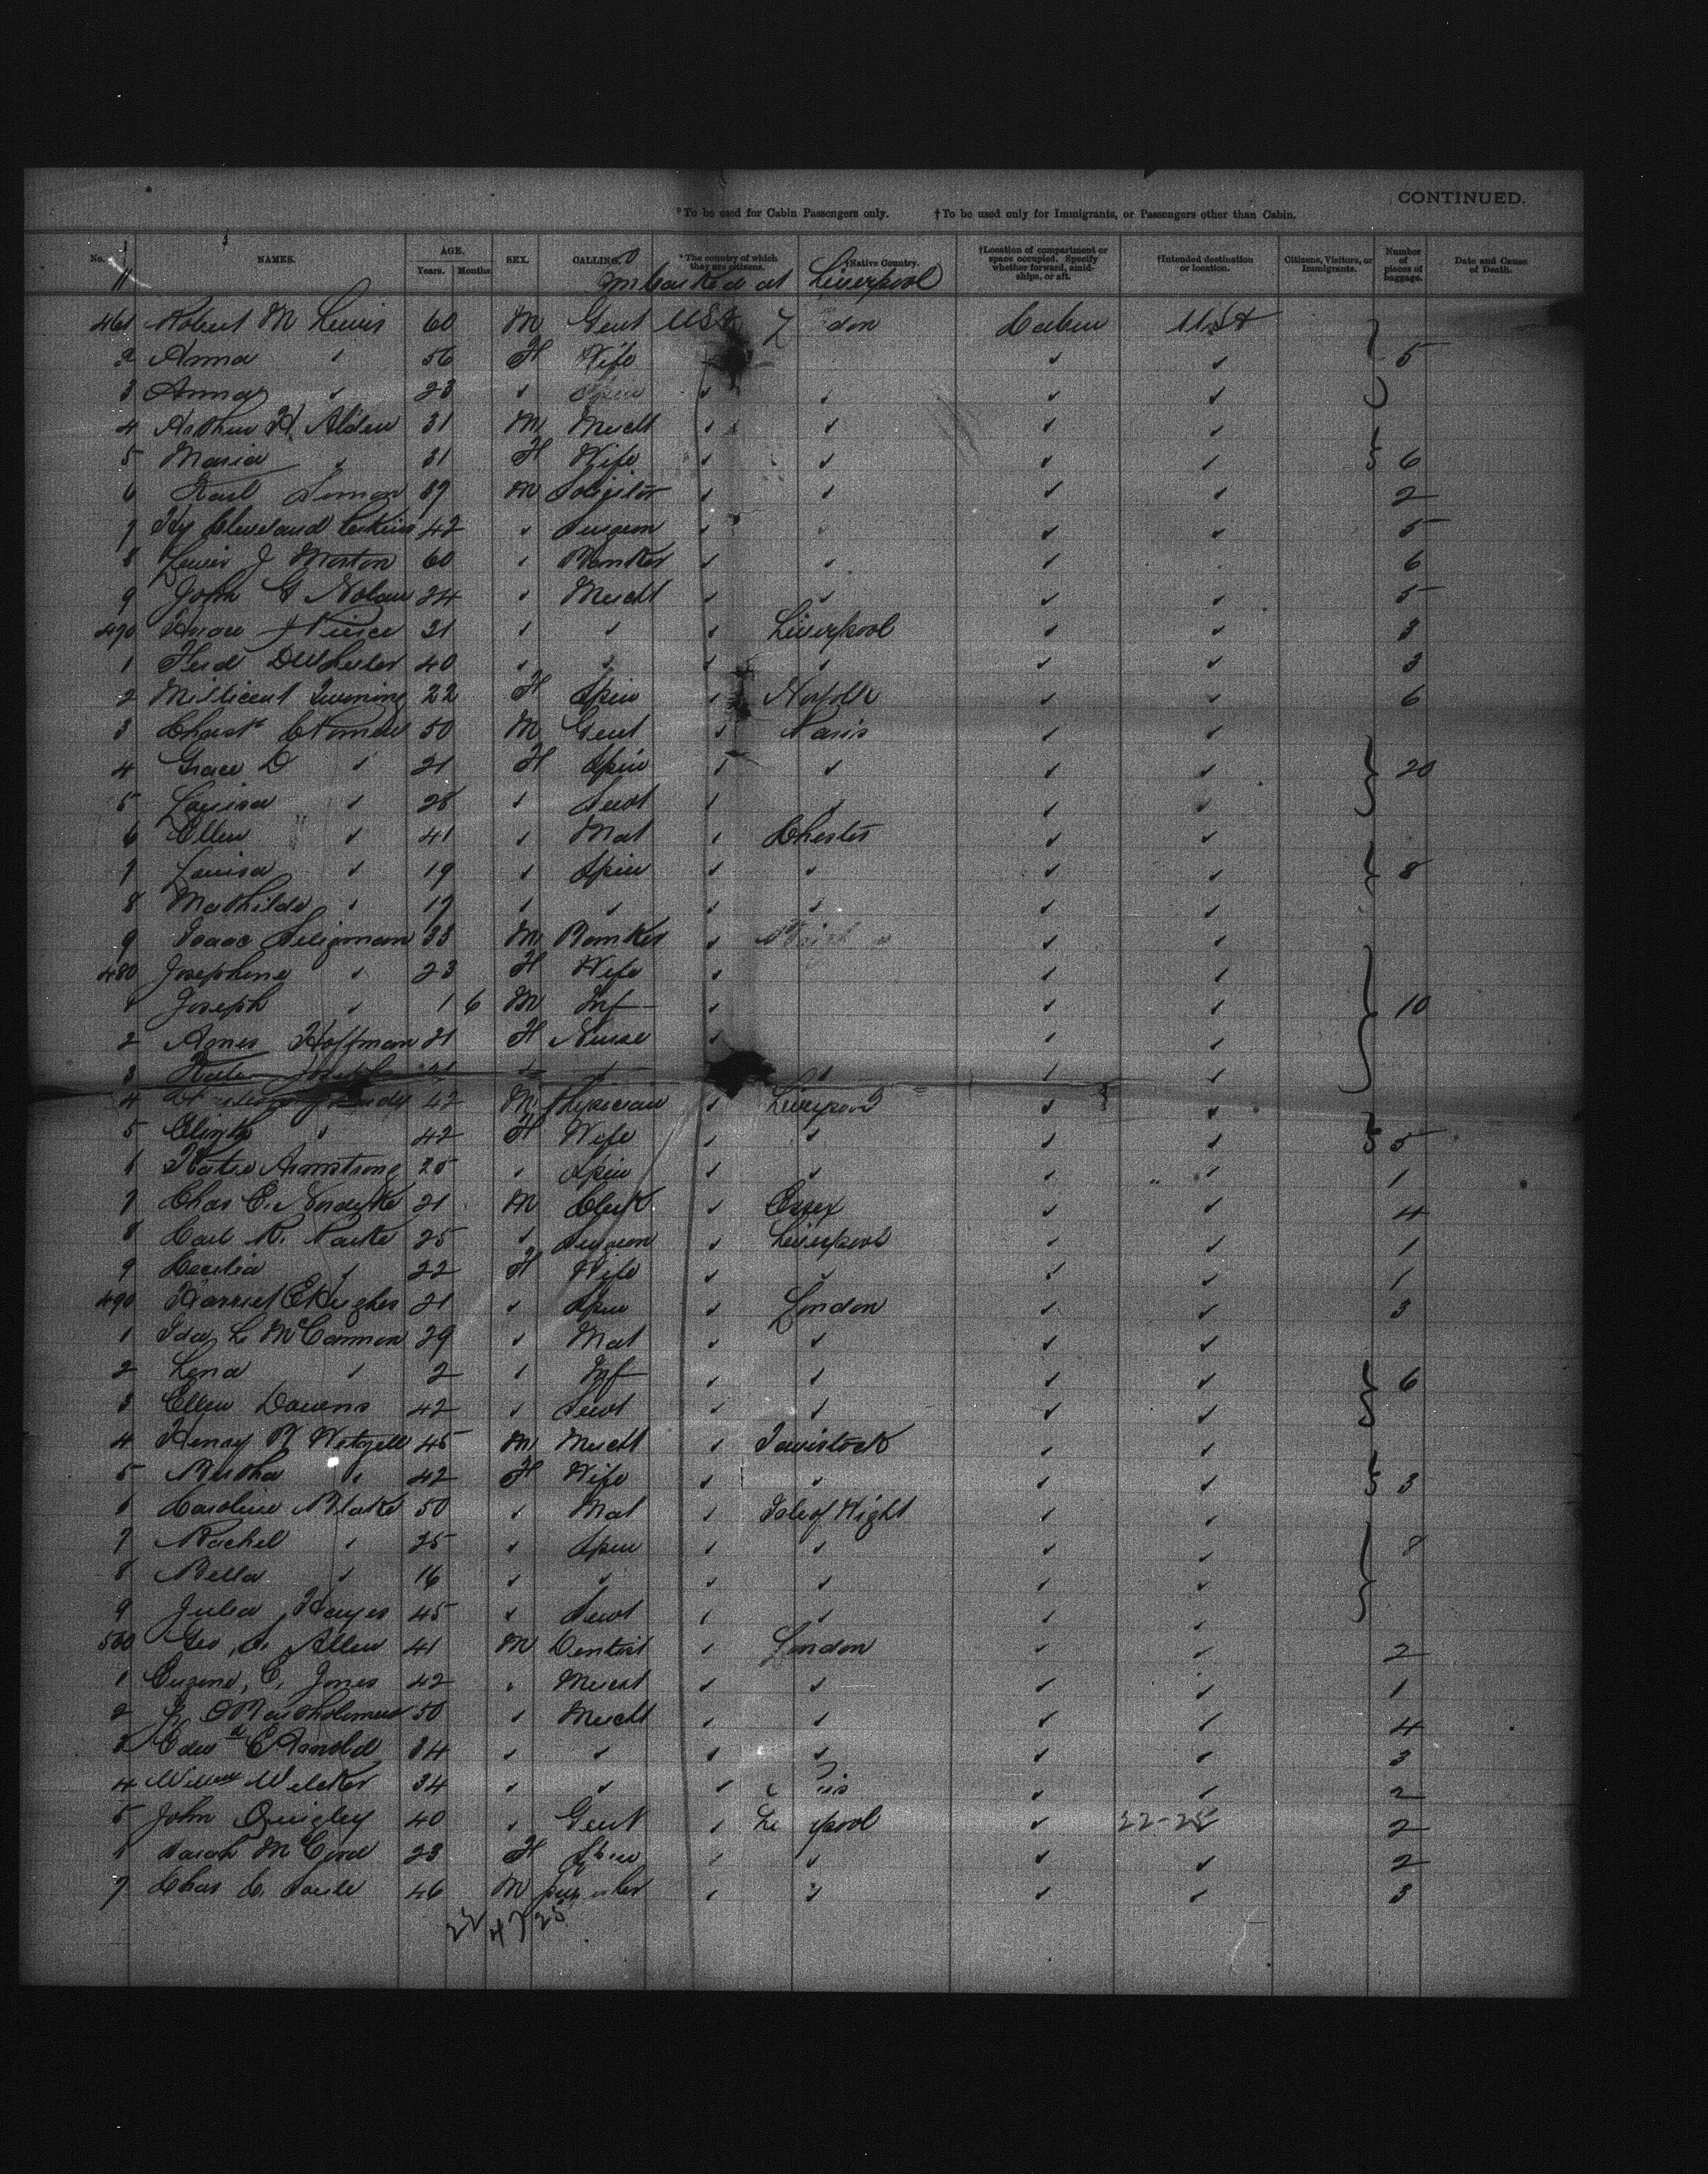 CONTINUED.
*To be used for Cabin Passengers only. †To be used only for Immigrants, or Passengers other than Cabin.
No. NAMES. AGE. Years. Months. SEX. CALLING. *The country of which they are citizens. †Native Country. †Location of compartment or space occupied. Specify whether forward, amidships, or aft. †Intended destination or location. Citizens, Visitors, or Immigrants. Number of pieces of baggage. Date and Cause of Death.
Embarked at Liverpool
461 Robert M Lewis 60 M Gent USA don Cabin USA
2 Anna ✓ 56 F Wife ✓ ✓ 5
3 Anna ✓ 23 ✓ Spin ✓ ✓ ✓ ✓
4 Arthur H. Alden 31 M Mercht ✓ ✓ ✓ ✓
5 Maria ✓ 31 F Wife ✓ ✓ ✓ ✓ 6
6 Karl 39 M Solicitor ✓ ✓ ✓ ✓ 2
7 Hy Cleveland Perkins 42 ✓ Surgeon ✓ ✓ ✓ 5
8 Lewis J Morton 60 ✓ Banker ✓ ✓ ✓ 6
9 John G Nolan 24 ✓ Mercht ✓ ✓ ✓ ✓ 5
470 J Pierce 31 ✓ ✓ ✓ Liverpool ✓ ✓ 3
1 Fred D Wheeler 40 ✓ ✓ ✓ ✓ ✓ ✓ 3
2 Millicent Twening 22 F Spin ✓ Norfolk ✓ ✓ 6
3 50 M Gent ✓ Paris ✓ ✓
4 Grace D ✓ 21 F Spin ✓ ✓ ✓ ✓ 20
5 Louisa ✓ 28 ✓ Servt ✓ ✓ ✓ ✓
6 Ellen ✓ 41 ✓ Mat ✓ Chester ✓ ✓
7 Louisa ✓ 19 ✓ Spin ✓ ✓ ✓ ✓ 8
8 Mathilde ✓ 17 ✓ ✓ ✓ ✓ ✓ ✓
9 Isaac Seligman 33 M Banker ✓ ✓ ✓
480 Josephine ✓ 23 F Wife ✓ ✓ ✓
1 Joseph ✓ 1 6 M Inf ✓ ✓ ✓ 10
2 Agnes Hoffman 21 F Nurse ✓ ✓ ✓
3 Kate Joseph 21 ✓ ✓ ✓ ✓
4 42 M Physician ✓ Liverpool ✓ ✓
5 ✓ 42 F Wife ✓ ✓ ✓ ✓ 5
6 Kate Armstrong 25 ✓ Spin ✓ ✓ ✓ ✓ 1
7 Chas E. 21 M Clerk ✓ Essex ✓ ✓ 4
8 Carl R. Parke 25 ✓ Surgeon ✓ Liverpool ✓ ✓ 1
9 Cecilia ✓ 22 F Wife ✓ ✓ ✓ ✓ 1
490 Harriet E Hughes 21 ✓ Spin ✓ London ✓ ✓ 3
1 Ida L McCammon 29 ✓ Mat ✓ ✓ ✓ ✓
2 Lena ✓ 2 ✓ Inf ✓ ✓ ✓ ✓ 6
3 Ellen Downs 42 ✓ Servt ✓ ✓ ✓ ✓
4 Henry W Wetzell 45 M Mercht ✓ Tavistock ✓ ✓
5 Bertha ✓ 42 F Wife ✓ ✓ ✓ ✓ 3
6 Caroline Blake 50 ✓ Mat ✓ Isle of Wight ✓ ✓
7 Rachel ✓ 25 ✓ Spin ✓ ✓ ✓ ✓ 8
8 Bella ✓ 16 ✓ ✓ ✓ ✓ ✓ ✓
9 Julia Hayes 45 ✓ Servt ✓ ✓ ✓ ✓
500 Geo. A. Allen 41 M Dentist ✓ London ✓ ✓ 2
1 Eugene, C, Jones 42 ✓ Mercht ✓ ✓ ✓ ✓ 1
2 Bartholomew 50 ✓ Mercht ✓ ✓ ✓ ✓ 4
3 Edwd C Arnold 34 ✓ ✓ ✓ ✓ ✓ ✓ 3
4 Welcker 34 ✓ ✓ ✓ is ✓ ✓ 2
5 John Quigley 40 ✓ Gent ✓ Li pool ✓ 22-25 ✓ 2
6 Sarah McCord 23 F Spin ✓ ✓ ✓ ✓ 2
7 Chas C. Soule 46 M ✓ ✓ ✓ ✓ 3
22 47 25